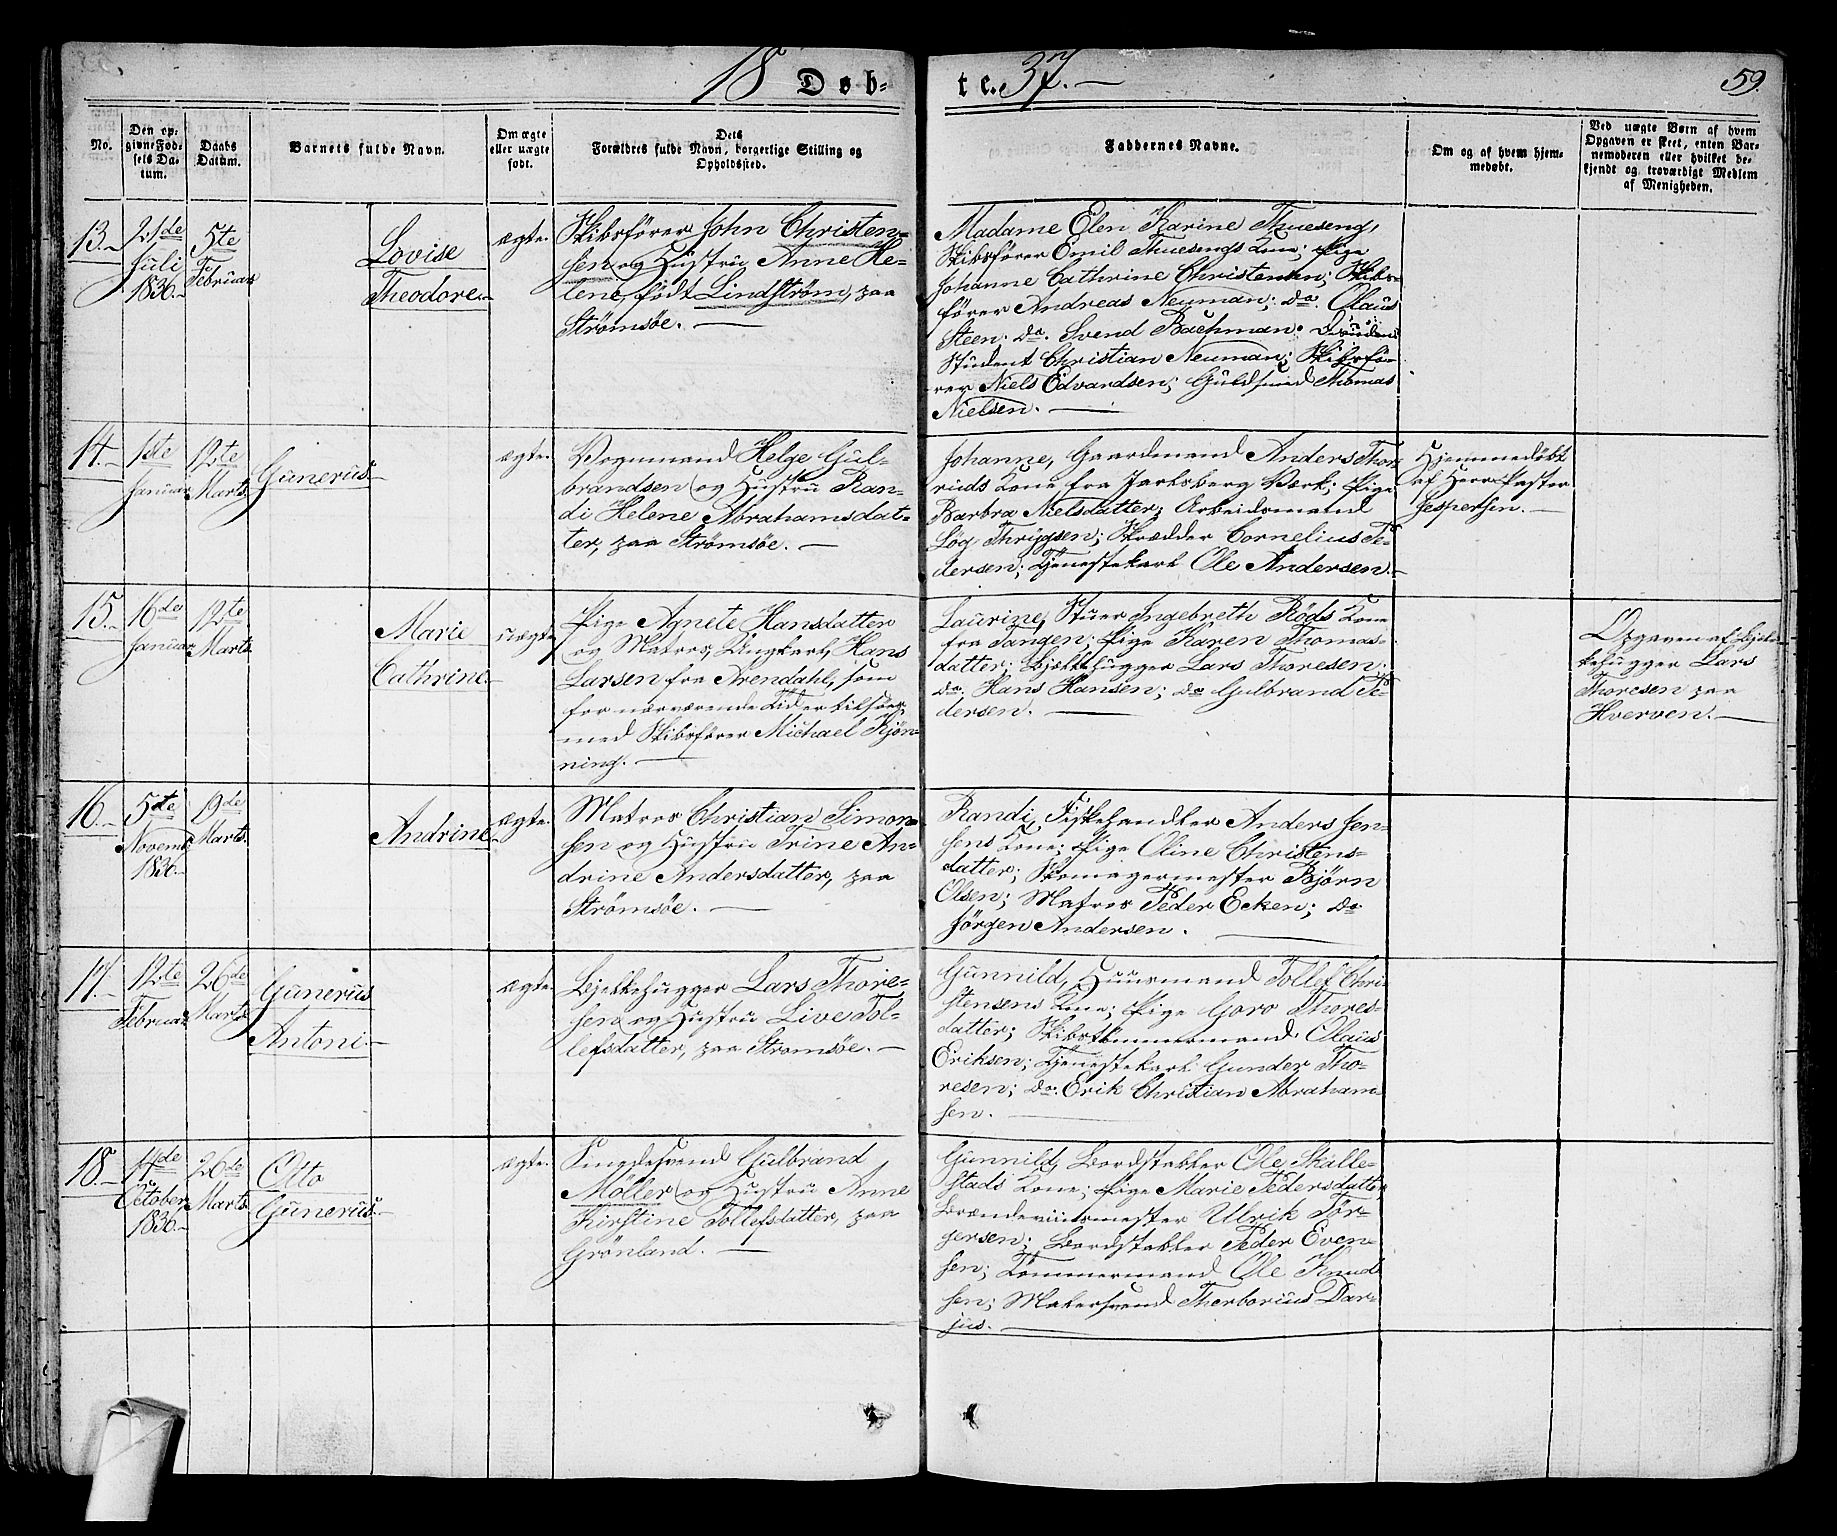 18 Døb-
te. 37.
59.
No.
Den op-
givne Fød-
sels Da-
tum.
Daabs
Datum.
Barnets fulde Navn.
Om ægte
eller uægte
født.
Dets
Forældres fulde Navn, borgerlige Stilling og
Opholdssted.
Faddernes Navne.
Om og af hvem hjem-
medøbt.
Ved uægte Børn af hvem
Opgaven er skeet, enten Bar-
nemoderen eller hvilket be-
kjendt og troværdigt Medlem
af Menigheden.
13.
21de
Juli
1836.
5te
Februar
Lovise
Theodore.
ægte.
Skibsfører John Christen-
sen og Hustru Anne He-
lene, født Lindstrøm, paa
Strømsøe.
Madame Elen Karine Thueseng,
Skibsfører Emil Thuesengs Kone; Pige
Johanne Cathrine Christensen; Skibs-
fører Andreas Neuman; do. Olaus
Steen. do. Svend Bachman.
Student Christian Neuman; Skibsfø-
rer Niels Edvardsen; Guldsmed Thomas
Nielsen.
14.
1ste
Januar
12te
Marts.
Gunerius.
ægte.
Vognmand Helge Gul-
brandsen og Hustru Ran-
di Helene Abrahamsdat-
ter, paa Strømsøe.
Johanne, Gaardmand Anders Thor-
ruds Kone fra Jarlsberg Værk; Pige
Barbra Nielsdatter; Arbeidsmand
Løg Thrygsen; Skrædder Cornelius Pe-
dersen; Tjenestekarl Ole Andersen.
Hjemmedøbt
af Herr Pastor
Jespersen.
15.
16de
Januar
12te
Marts
Marie
Cathrine.
uægte
Pige Agnete Hansdatter
og Matros, Ungkarl, Hans
Larsen fra Arendahl, som
for nærværende Tid er tilsøes
med Skibsfører Michael Kjøn-
ning.
Laurine, Stuer Ingebreth Røds Kone
fra Tangen; Pige Karen Thomas-
datter; Bjelkehugger Lars Thoresen.
do. Hans Hansen; do Gulbrand Pe-
dersen.
Opgaven af Bjel-
kehugger Lars
Thoresen paa
Hverven.
16.
5te
Novemb.
1836.
19de
Marts.
Andrine.
ægte.
Matros Christian Simon-
sen og Hustru Trine An-
drine Andersdatter, paa
Strømsøe.
Randi, Fiskehandler Anders Jen-
sens Kone; Pige Oline Christens-
datter; Skomagermester Bjørn
Olsen; Matros Peder Ecken; do
Jørgen Andersen.
17.
12te
Februar
26de
Marts
Gunerius
Antoni.
ægte.
Bjelkehugger Lars Thore-
sen og Hustru Live Tol-
lefsdatter, paa Strømsøe.
Gunnild, Huusmand Tollef Chri-
stensens Kone; Pige Goro Thores-
datter; Skibstømmermand Olaus
Eriksen; Tjenestekarl Gunder Tho-
resen; do. Erik Christian Abraham-
sen.
18.
14de
October,
1836.
26de
Marts.
Otto
Gunerius.
ægte.
Gulbrand
Møller og Hustru Anne
Kirstine Tollefsdatter, paa
Grønland.
Gunnild, Bordstabler Ole Skalle-
stads Kone; Pige Marie Pedersdatter
Brændeviinsmester Ulrik Tør-
gersen; Bordstabler Peder Even-
sen; Tømmermand Ole Knud-
sen; Malersvend Thorborius Dar-
jus.